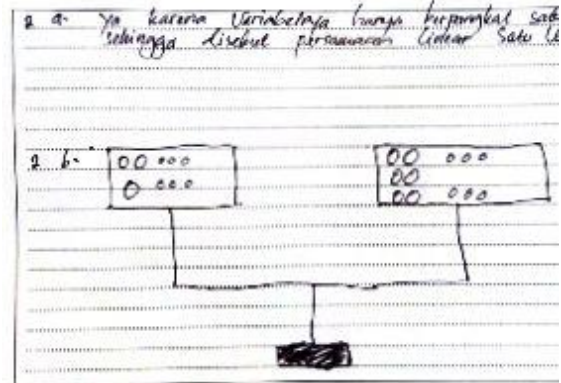 2 a. Ya karena Variabelnya hanya berpangkat
sehingga disebut persamaan linear Satu
2 b.